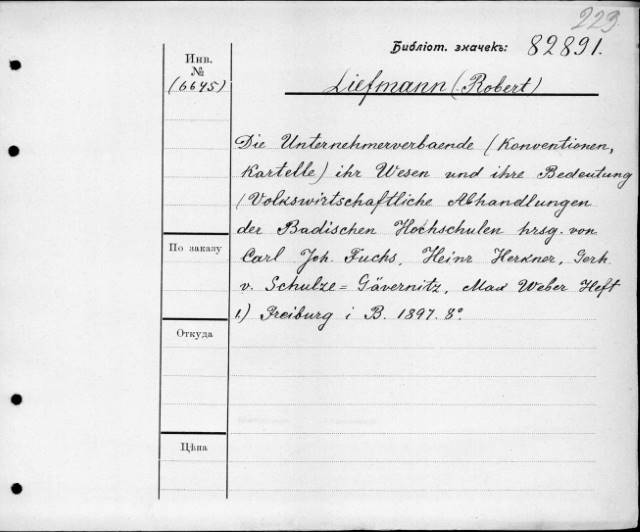 223.
Библіот. значекъ: 82891.
Инв.
№
(6645)
Liefmann (Robert)
Die Unternehmerverbaende (Konventionen,
Kartelle) ihr Wesen und ihre Bedeutung
(Volkswirtschaftliche Abhandlungen
der Badischen Hochschulen hrsg. von
Carl Joh. Fuchs, Heinr Herkner, Gerh.
v. Schulze=Gävernitz, Max Weber Heft
1.) Freiburg i B. 1897. 8°.
По заказу
Откуда
Цѣна